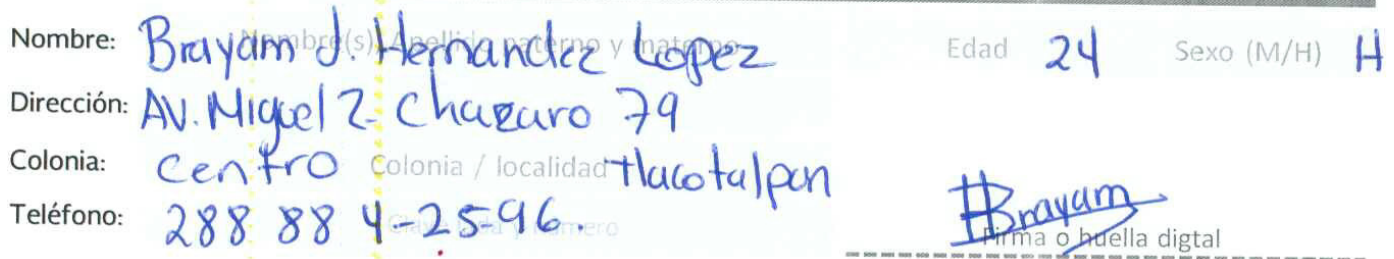 Nombre: Brayam J. Hernandez Lopez Edad 24 Sexo (M/H) H
Nombre(s) Apellido paterno y materno
Dirección: AV. Miguel Z. Chazaro 79
Colonia: Centro Colonia / localidad Tlacotalpan
Teléfono: 288 88 4-25-96.
número
Brayam
Firma o huella digtal